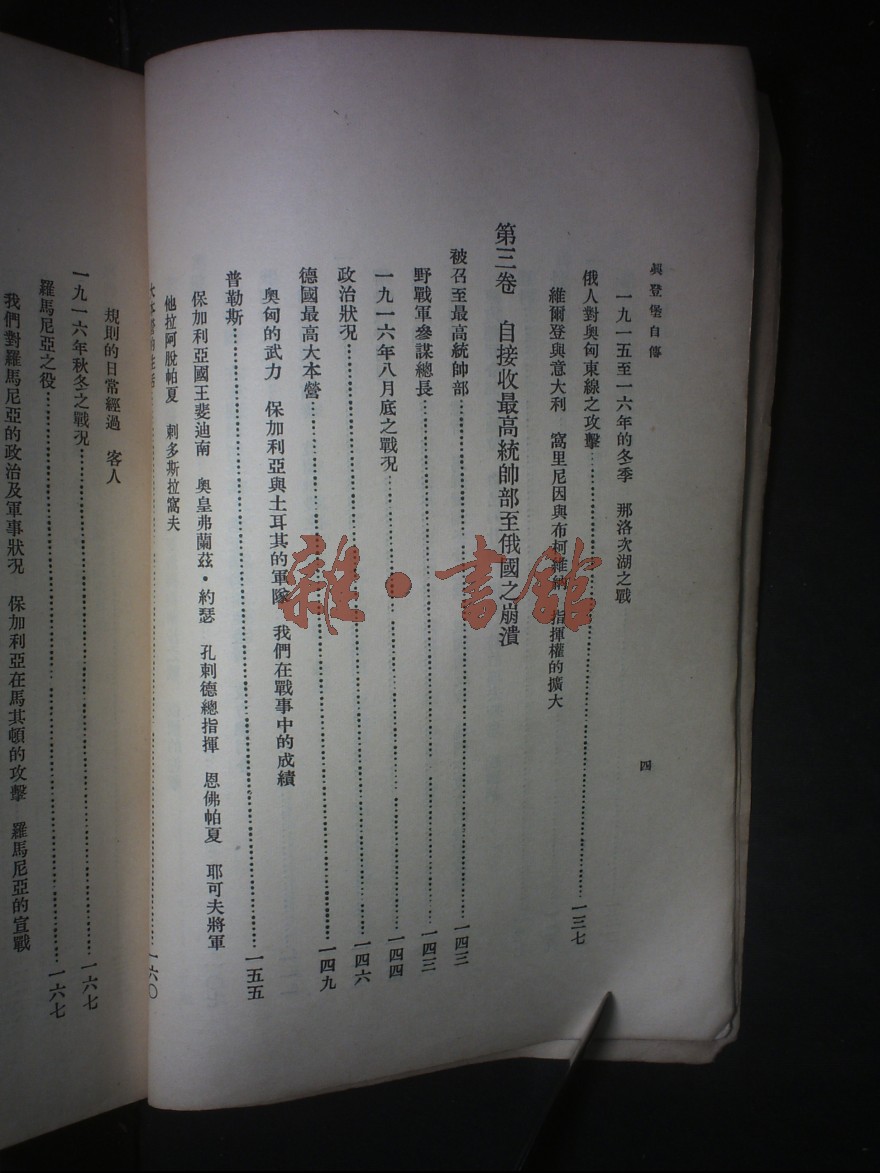 興登堡自傳
四
一九一五至一六年的冬季　那洛次湖之戰
俄人對奧匈東線之攻擊……一三七
維爾登與意大利　窩里尼因與布柯維納　指揮權的擴大
第三卷　自接收最高統帥部至俄國之崩潰
被召至最高統帥部……一四三
野戰軍參謀總長……一四三
一九一六年八月底之戰況……一四四
政治狀況……一四六
德國最高大本營……一四九
奧匈的武力　保加利亞與土耳其的軍隊　我們在戰事中的成績
普勒斯……一五五
保加利亞國王斐迪南　奧皇弗蘭茲・約瑟　孔剌德總指揮　恩佛帕夏　耶可夫將軍
他拉阿脫帕夏　剌多斯拉窩夫
大本營的生活……一六〇
規則的日常經過　客人
一九一六年秋冬之戰況……一六七
羅馬尼亞之役……一六七
我們對羅馬尼亞的政治及軍事狀況　保加利亞在馬其頓的攻擊　羅馬尼亞的宣戰
雜・書館